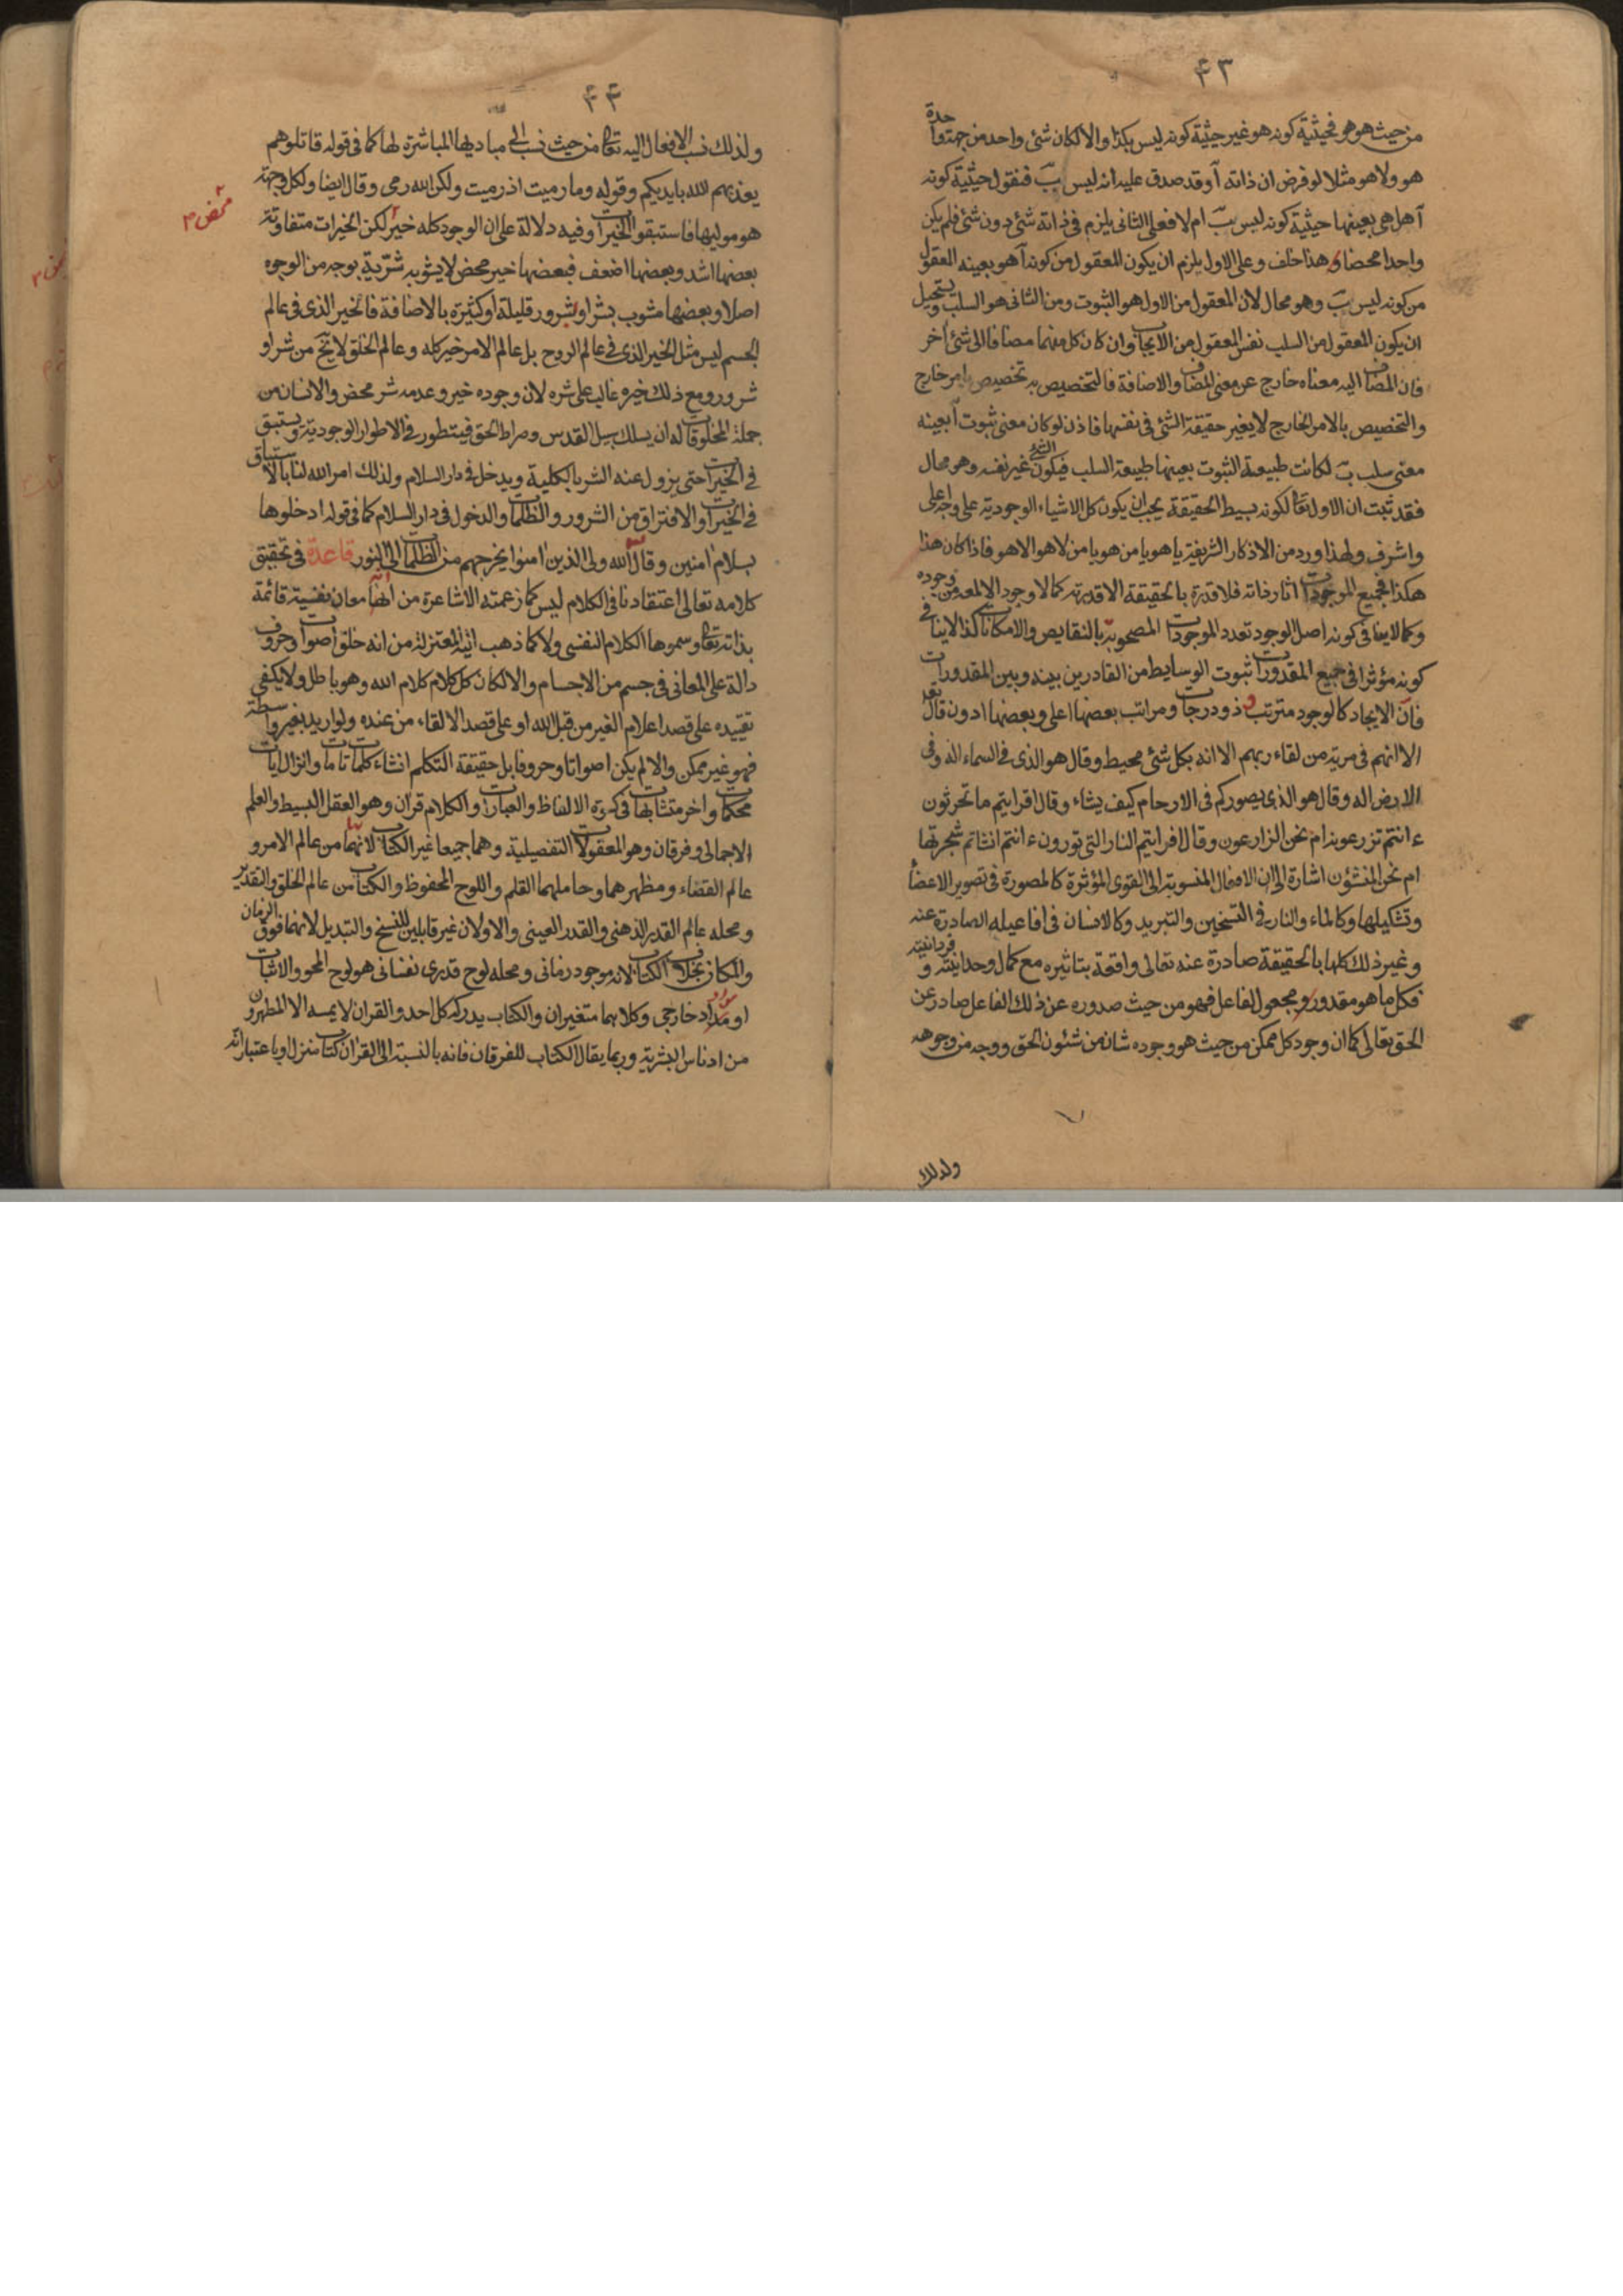 ۴۳
من حيث هو هو فحيثية كونه هو غير حيثية كونه ليس بكذا والا لكان شئ واحد من جهة واحدة
هو ولا هو مثلا لو فرض ان ذاته آ وقد صدق عليه انه ليس بَ فنقول حيثية كونه
آ هل هى بعينها حيثية كونه ليس بَ ام لا فعلى الثانى يلزم فى ذاته شئ دون شئ فلم يكن
واحدا محضا و هذا خلف وعلى الاول يلزم ان يكون المعقول من كونه آ هو بعينه المعقول
من كونه ليس بَ وهو محال لان المعقول من الاول هو الثبوت ومن الثانى هو السلب ويستحيل
ان يكون المعقول من السلب نفس المعقول من الايجاب وان كان كل منهما مضافا الى شئ اخر
فان المضاف اليه معناه خارج عن معنى المضاف والاضافة فالتخصيص به تخصيص بامر خارج
والتخصيص بالامر الخارج لا يغير حقيقة الشئ فى نفسها فاذن لو كان معنى ثبوت آ بعينه
معنى سلب بَ لكانت طبيعة الثبوت بعينها طبيعة السلب فيكون الشئ غير نفسه وهو محال
فقد ثبت ان الاول تعا لكونه بسيط الحقيقة يجب ان يكون كل الاشياء الوجودية على وجه اعلى
واشرف ولهذا ورد من الاذكار الشريفة يا هو يا من هو يا من لا هو الا هو فاذا كان هذا
هكذا فجميع الموجودات اثار ذاته فلا قدرة بالحقيقة الا قدرته كما لا وجود الا لمعة من وجوده
وكما لا ينافى كونه اصل الوجود تعدد الموجودات المصحوبة بالنقايص والامكانات كذا لا ينافى
كونه مؤثرا فى جميع المقدورات ثبوت الوسايط من القادرين بينه وبين المقدورات
فان الايجاد كالوجود مترتب ذو درجات ومراتب بعضها اعلى وبعضها ادون قال تعا
الا انهم فى مرية من لقاء ربهم الا انه بكل شئ محيط وقال هو الذى فى السماء اله وفى
الارض اله وقال هو الذى يصوركم فى الارحام كيف يشاء وقال افرايتم ما تحرثون
ءانتم تزرعونه ام نحن الزارعون وقال افرايتم النار التى تورون ءانتم انشاتم شجرتها
ام نحن المنشؤن اشارة الى ان الافعال المنسوبة الى القوى المؤثرة كالمصورة فى تصوير الاعضاء
وتشكيلها وكالماء والنار فى التسخين والتبريد وكالانسان فى افاعيله الصادرة عنه
وغير ذلك كلها بالحقيقة صادرة عنه تعالى واقعة بتاثيره مع كمال وحدانيته و فردانيته
فكل ما هو مقدور ومجعول لفاعل فهو من حيث صدوره عن ذلك الفاعل صادر عن
الحق تعالى كما ان وجود كل ممكن من حيث هو وجوده شان من شئون الحق ووجه من وجوهه
ولذلك
۴۴
ولذلك نسب الافعال اليه تعا من حيث نسب الى مباديها المباشرة لها كما فى قوله قاتلوهم
يعذبهم الله بايديكم وقوله وما رميت اذ رميت ولكن الله رمى وقال ايضا ولكل وجهة
هو موليها فاستبقوا الخيرات وفيه دلالة على ان الوجود كله خير لكن الخيرات متفاوتة
محض
بعضها اشد وبعضها اضعف فبعضها خير محض لا يشوبه شرية بوجه من الوجوه
اصلا وبعضها مشوب بشر او شرور قليلة او كثيرة بالاضافة فالخير الذى فى عالم
الجسم ليس مثل الخير الذى فى عالم الروح بل عالم الامر خير كله وعالم الخلق لا يخ من شر او
شرور ومع ذلك خيره غالب على شره لان وجوده خير وعدمه شر محض والانسان من
جملة المخلوقات له ان يسلك سبيل القدس وصراط الحق فيتطور فى الاطوار الوجودية ويستبق
فى الخيرات حتى يزول عنه الشر بالكلية ويدخل فى دار السلام ولذلك امر الله لنا بالاستباق
فى الخيرات والافتراق من الشرور والظلمات والدخول فى دار السلام كما فى قوله ادخلوها
بسلام امنين وقال الله ولى الذين امنوا يخرجهم من الظلمات الى النور قاعدة فى تحقيق
كلامه تعالى اعتقادنا فى الكلام ليس كما زعمته الاشاعرة من انها معان نفسية قائمة
بذاته تعا وسموها الكلام النفسى ولا كما ذهب اليه المعتزلة من انه خلق اصوات وحروف
دالة على المعانى فى جسم من الاجسام والا لكان كل كلام كلام الله وهو باطل ولا يكفى
تقييده على قصد اعلام الغير من قبل الله او على قصد الالقاء من عنده ولو اريد بغير واسطة
فهو غير ممكن والا لم يكن اصواتا وحروفا بل حقيقة التكلم انشاء كلمات تامات وانزال ايات
محكمات واخر متشابهات فى كسوة الالفاظ والعبارات والكلام قران وهو العقل البسيط والعلم
الاجمالى وفرقان وهو المعقولات التفصيلية وهما جميعا غير الكتاب لانهما من عالم الامر و
عالم القضاء ومظهرهما وحاملهما القلم واللوح المحفوظ والكتاب من عالم الخلق والتقدير
ومحله عالم القدر الذهنى والقدر العينى والاولان غير قابلين للنسخ والتبديل لانهما فوق الزمان
والمكان بخلاف الكتاب لانه موجود زمانى ومحله لوح قدرى نفسانى هو لوح المحو والاثبات
او مواد خارجى وكلاهما متغيران والكتاب يدركه كل احد والقران لا يمسه الا المطهرون
من ادناس البشرية وربما يقال الكتاب للفرقان فانه بالنسبة الى القران كتاب منزل او باعتبار انه